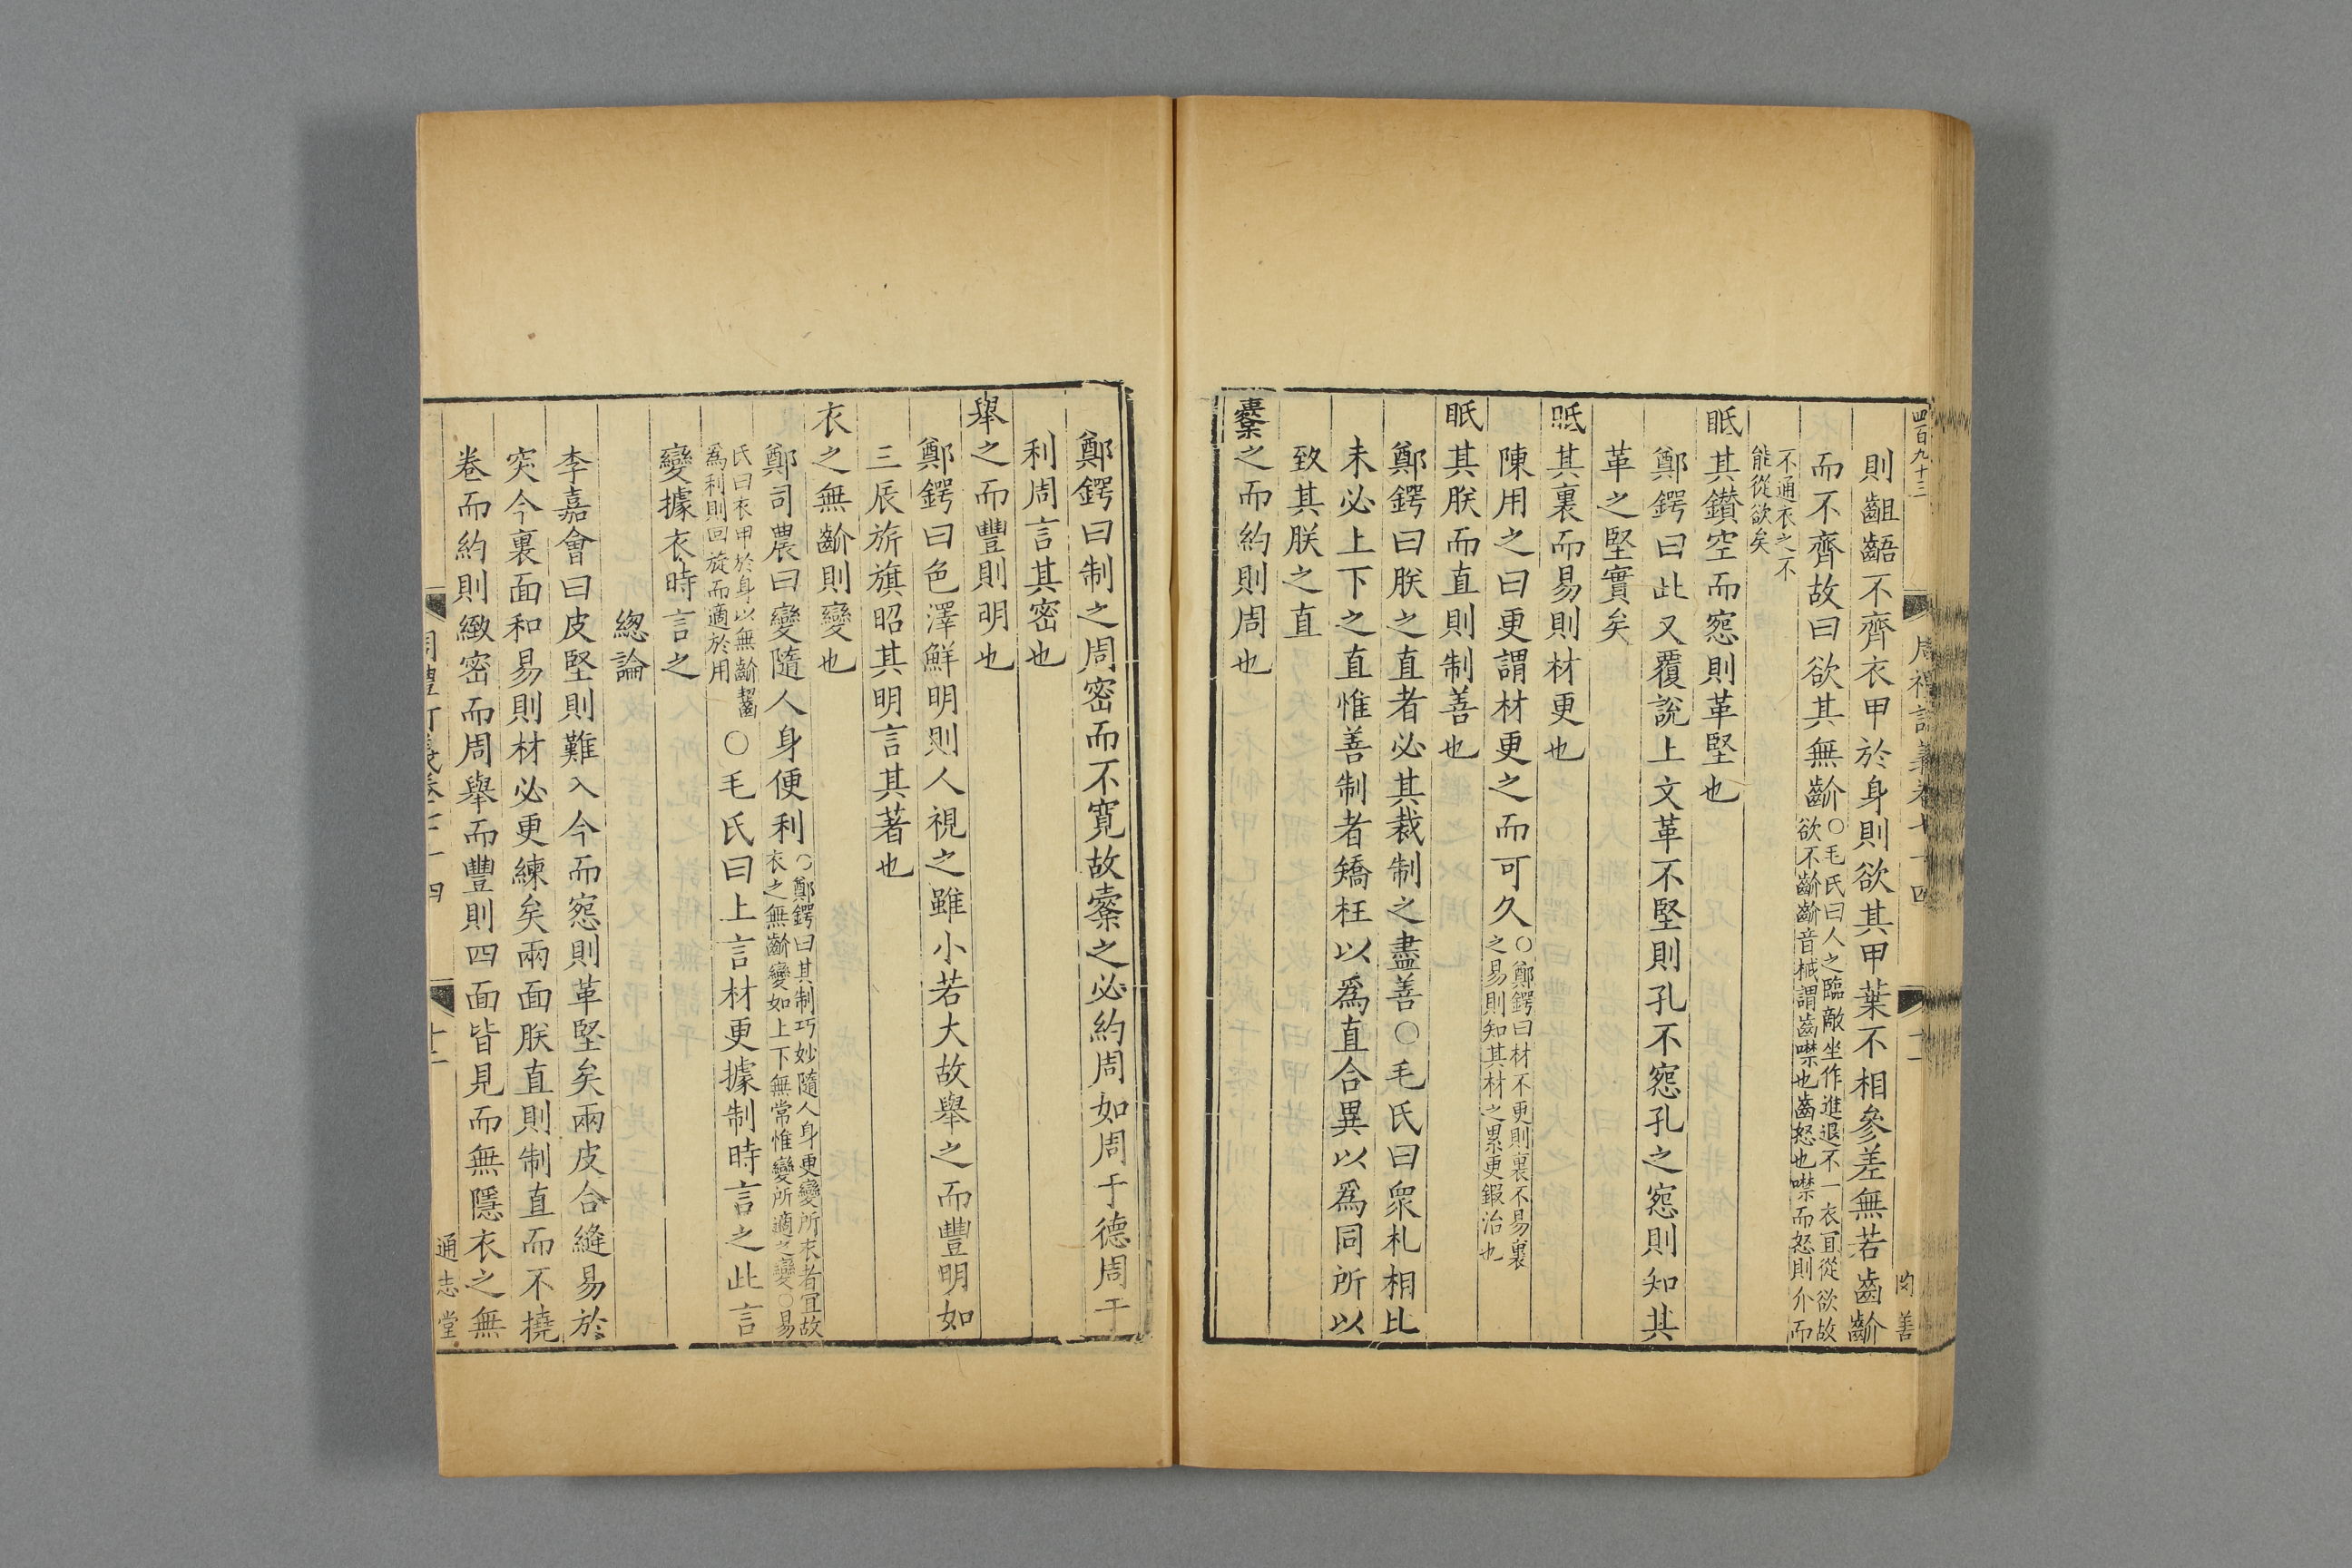 四百九十三
則齟齬不齊衣甲於身則欲其甲葉不相參差無若齒齘
而不齊故曰欲其無齘○毛氏曰人之臨敵坐作進退不一衣宜從欲故
欲不齘齘音械謂齒噤也齒怒也噤而怒則介而
不通衣之不
能從欲矣
眡其鑽空而窓則革堅也
鄭鍔曰此又覆說上文革不堅則孔不窓孔之窓則知其
革之堅實矣
眡其裏而易則材更也
陳用之曰更謂材更之而可久○鄭鍔曰材不更則裏不易裏
之易則知其材之累更鍜治也
眡其朕而直則制善也
鄭鍔曰朕之直者必其裁制之盡善○毛氏曰眾札相比
未必上下之直惟善制者矯枉以爲直合異以爲同所以
致其朕之直
櫜之而約則周也
鄭鍔曰制之周密而不寬故櫜之必約周如周于德周于
利周言其密也
舉之而豐則明也
鄭鍔曰色澤鮮明則人視之雖小若大故舉之而豐明如
三辰旂旗昭其明言其著也
衣之無齘則變也
鄭司農曰變隨人身便利○鄭鍔曰其制巧妙隨人身更變所衣者宜故
衣之無齘變如上下無常惟變所適之變○易
氏曰衣甲於身以無齘齧
爲利則回旋而適於用○毛氏曰上言材更據制時言之此言
變據衣時言之
總論
李嘉會曰皮堅則難入今而窓則革堅矣兩皮合縫易於
突今裏面和易則材必更練矣兩面朕直則制直而不撓
卷而約則緻密而周舉而豐則四面皆見而無隱衣之無
十二
通志堂